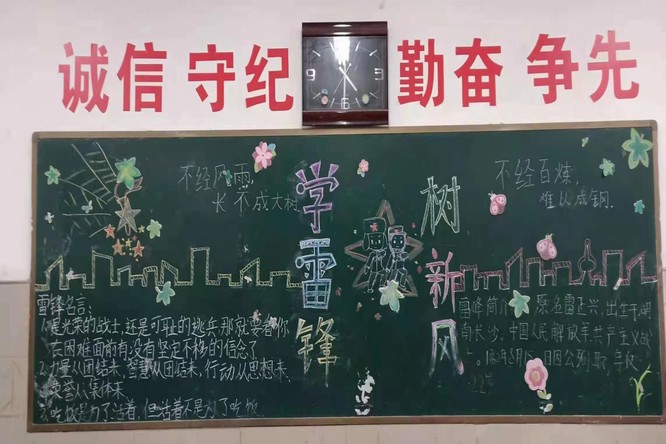 诚信 守纪 勤奋 争先
12
3
6
9
不经风雨,
长不成大树
不经百炼,
难以成钢.
学雷锋
树新风
雷锋名言:
1.是光荣的战士,还是可耻的逃兵,那就要看你
在困难面前有没有坚定不移的信念了
2.力量从团结来,智慧从团结来,行动从思想来,
荣誉从集体来
3.吃饭是为了活着,但活着不是为了吃饭
雷锋简介: 原名雷正兴,出生于湖
南长沙,中国人民解放军共产主义战
8月15 因公 年仅
22岁